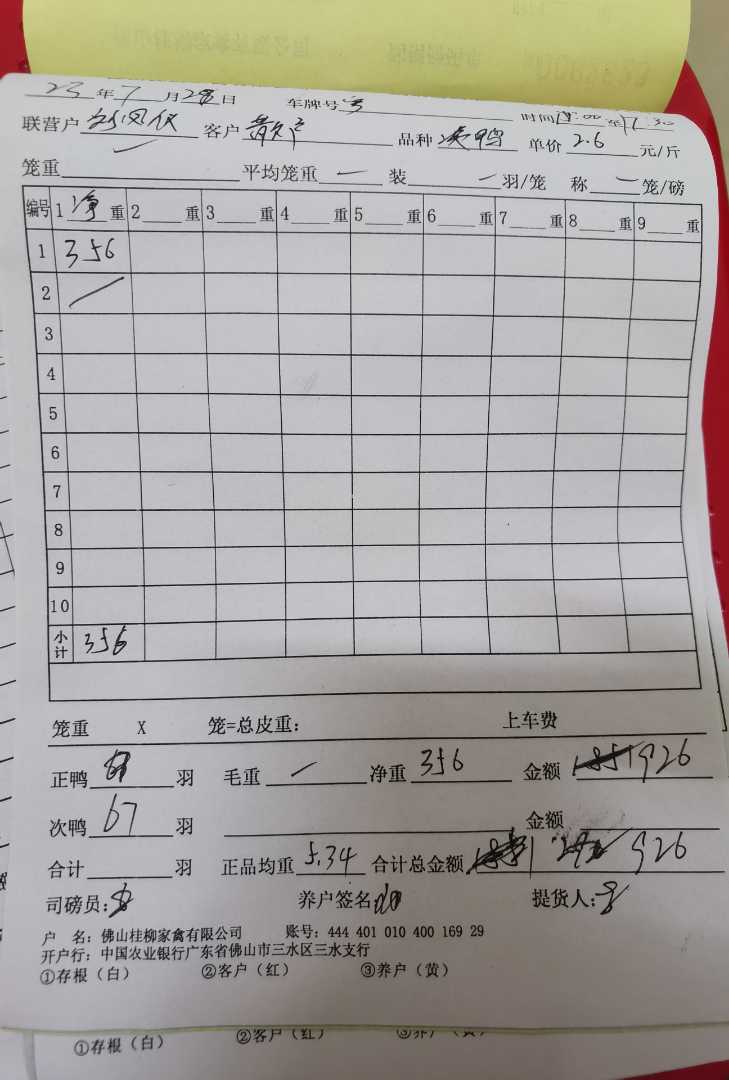 23年7月28日 车牌号
时间 17:30
联营户 客户 散户 品种 次鸭 单价 2.6 元/斤
笼重 平均笼重 一 装 一 羽/笼 称 一 笼/磅
编号 1 净 重 2 重 3 重 4 重 5 重 6 重 7 重 8 重 9 重
1 356
2
3
4
5
6
7
8
9
10
小计 356
笼重 X 笼=总皮重: 上车费
正鸭 羽 毛重 净重 356 金额 926
次鸭 67 羽 金额
合计 羽 正品均重 5.34 合计总金额 926
司磅员: 养户签名: 提货人:
户 名: 佛山桂柳家禽有限公司 账号: 444 401 010 400 169 29
开户行: 中国农业银行广东省佛山市三水区三水支行
①存根(白) ②客户(红) ③养户(黄)
①存根(白) ②客户(红) ③养户(黄)